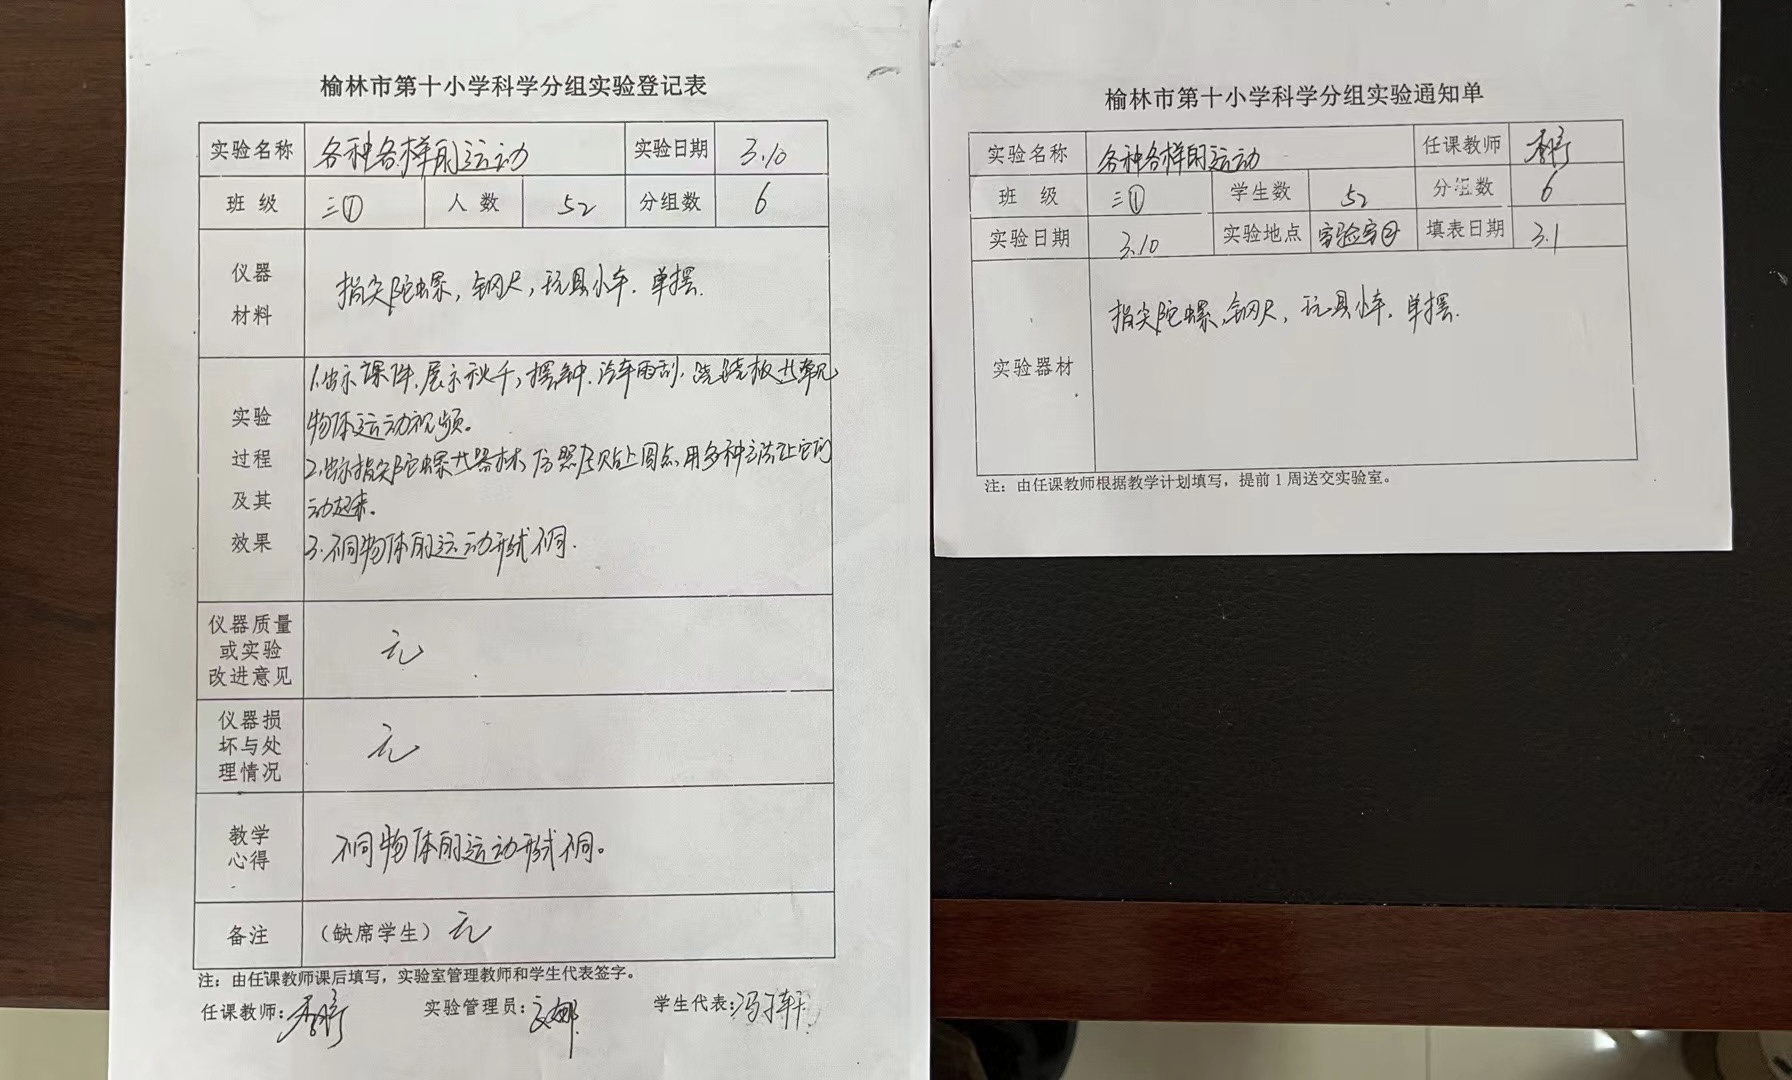 榆林市第十小学科学分组实验登记表
实验名称 各种各样的运动 实验日期 3.10
班 级 三① 人 数 52 分组数 6
仪器
材料
指尖陀螺,钢尺,玩具小车.单摆.
实验
过程
及其
效果
1.出示课件,展示秋千,摆钟.汽车雨刮.跷跷板共常见
物体运动视频。
2.出示指尖陀螺共器材,仿照 贴上圆点,用多种方法让它们
动起来。
3.不同物体的运动形式不同.
仪器质量
或实验
改进意见
无
仪器损
坏与处
理情况
无
教学
心得
不同物体的运动形式不同。
备注 (缺席学生) 无
注:由任课教师课后填写,实验室管理教师和学生代表签字。
任课教师: 实验管理员: 学生代表:冯子轩
榆林市第十小学科学分组实验通知单
实验名称 各种各样的运动 任课教师
班 级 三① 学生数 52 分组数 6
实验日期 3.10 实验地点 实验室② 填表日期 3.1
实验器材
指尖陀螺,钢尺,玩具小车.单摆.
注:由任课教师根据教学计划填写,提前1周送交实验室。